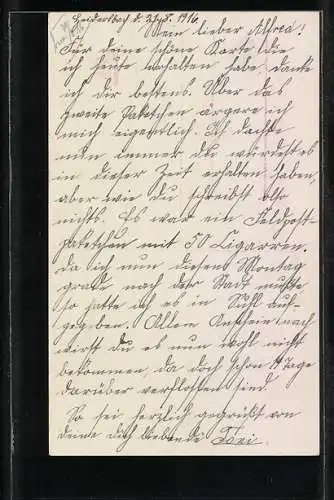 Heidersbach d. 20/5. 1916.
Mein lieber Alfred!
Für deine schöne Karte die
ich heute erhalten habe, danke
ich dir bestens. Über das
zweite Paketchen ärgere ich
mich eigentlich. Ich dachte
nun immer du würdest es
in dieser Zeit erhalten haben,
aber wie du schreibst also
nichts. Es war ein Feldpost-
paketchen mit 50 Cigarren.
Da ich nun diesen Montag
grade nach der Stadt mußte
so hatte ich es in Suhl auf-
gegeben. Allem Anschein nach
wirst du es nun wohl nicht
bekommen, da doch schon 14 Tage
darüber verflossen sind.
So sei herzlich gegrüßt von
deine dich liebende